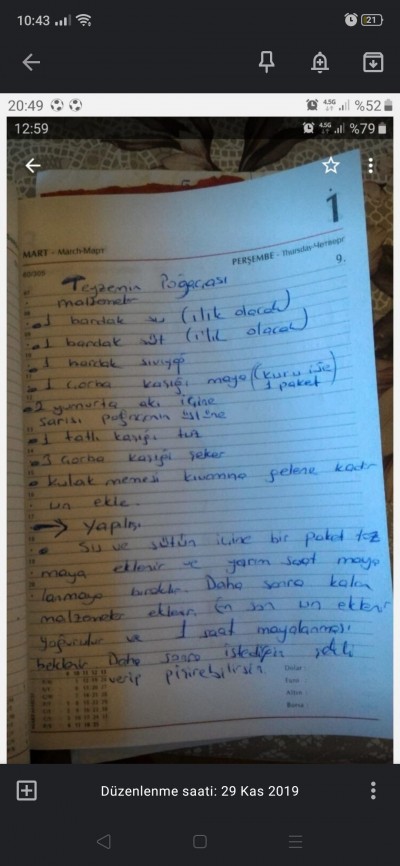 10:43
21
20:49
4.5G
%52
12:59
4.5G
%79
1
MART - March-Март
PERŞEMBE - Thursday-Четверг
9.
Teyzemin Poğaçası
malzemeler
1 bardak su (ılık olacak)
1 bardak süt (ılık olacak)
1 bardak sıvıyağ
1 çorba kaşığı maya (kuru ise
1 paket)
2 yumurta akı içine
sarısı poğaçanın üstüne
1 tatlı kaşığı tuz
3 çorba kaşığı şeker
kulak memesi kıvamına gelene kadar
un ekle.
→ Yapılışı
Su ve sütün içine bir paket toz
maya eklenir ve yarım saat maya
lanmaya bırakılır. Daha sonra kalan
malzemeler eklenir. En son un eklenir
yoğurulur ve 1 saat mayalanması
beklenir. Daha sonra istediğin şekli
verip pişirebilirsin.
Dolar :
Euro :
Altın :
Borsa :
Düzenlenme saati: 29 Kas 2019